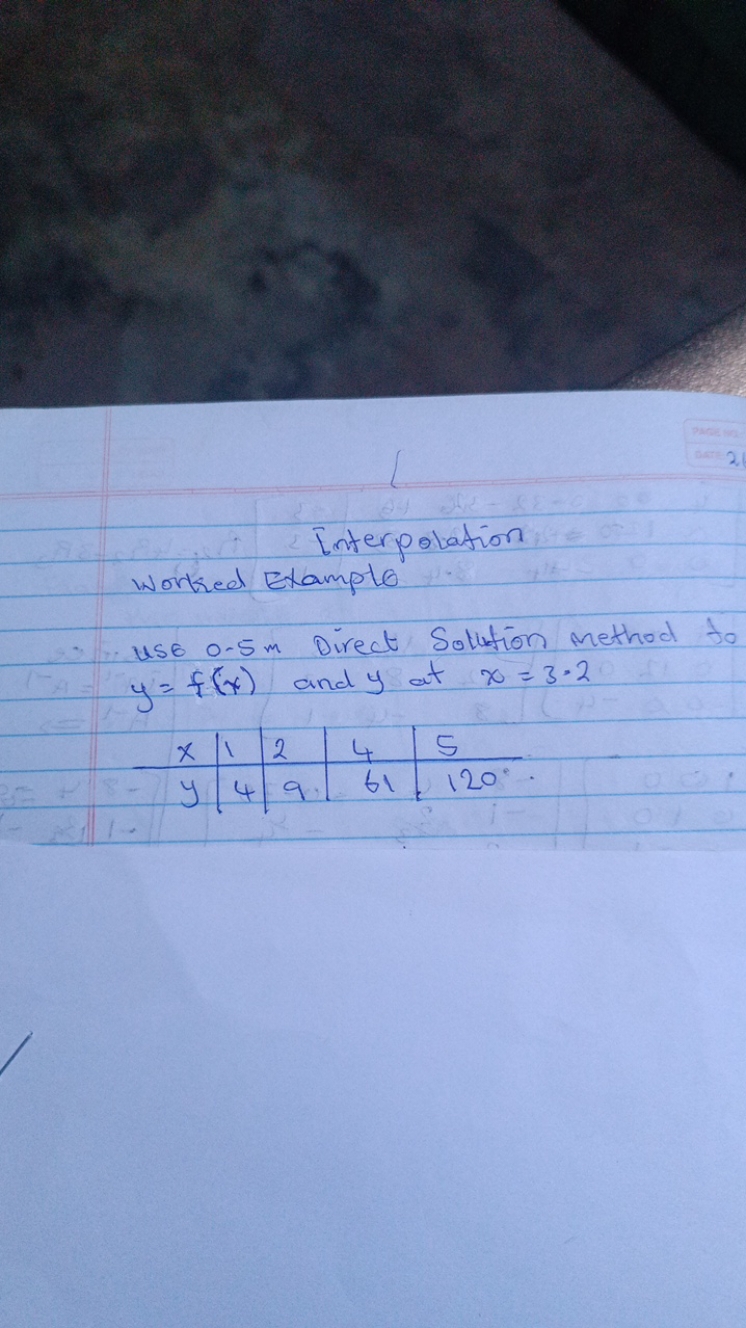 PAGE NO:
DATE: 21
Interpolation
Worked Example
use 0-5m Direct Solution method to
y = f(x) and y at x = 3.2
x | 1 | 2 | 4 | 5
y | 4 | 9 | 61 | 120